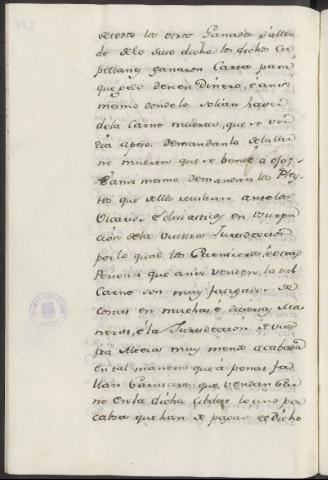 de todo los otros Ganados, é allen
de de lo suso dicho los dichos Ca
pellanes ganaron Carta para
que gelo den en Dinero, é ansi
mesmo donde lo solian haver
de la Carne muerta, que se ven
dia á peso: demandanlo de la Car
ne muerta que se bende á ojo;
é ansi mesmo demandan los Pley
tos que dello resultaron ante los
Vicarios, Eclesiasticos en Usurpa
cion de la vuestra Jurisdiccion
por lo qual los Carniceros, é otras
Personas que ansi venden la tal
Carne son muy fatigados de
costas en muchas, é diversas Ma
neras, é la Jurisdiccion de vues
tra Alteza muy menos acabada
En tal manera que á penas fa
llan Carniceros que vendan Car
ne En la dicha Cibdad lo uno por
cabsa que han de pagar el dicho